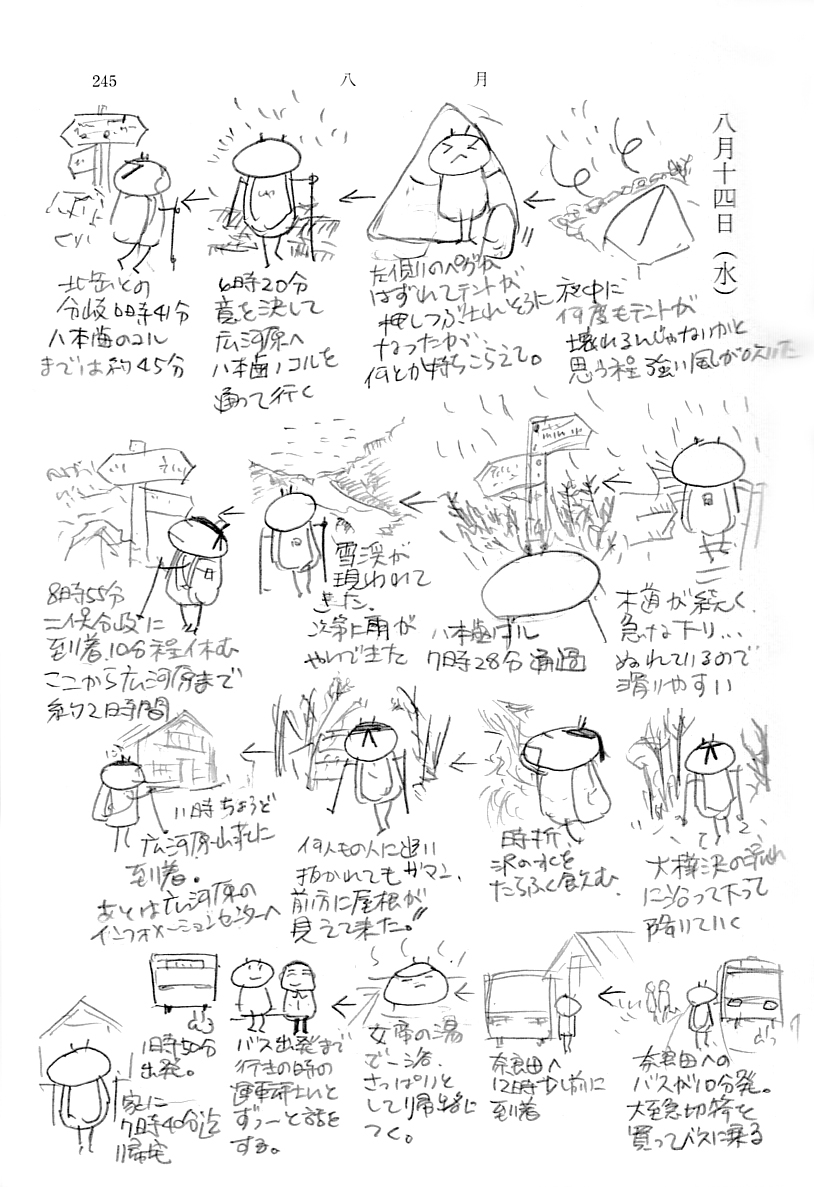 245
八月
八月十四日(水)
夜中に
何度もテントが
壊れるんじゃないかと
思う程強い風が吹いた
左側のペグが
はずれてテントが
押しつぶされそうに
なったが、
何とか持ちこらえる。
6時20分
意を決して
広河原へ
八本歯ノコルを
通って行く
北岳との
分岐6時41分
八本歯のコル
までは約45分
木道が続く、
急な下り…
ぬれているので
滑りやすい
八本歯ノコル
7時28分通過
雪渓が
現われて
きた、
次第に雨が
やんできた
8時55分
二俣分岐に
到着、10分程休む
ここから広河原まで
約2時間
大樺沢の流れ
に沿って下って
降りていく
時折、
沢の水を
たらふく飲む、
何人もの人に追い
抜かれてもガマン、
前方に屋根が
見えて来た。〃
11時ちょうど
広河原山荘に
到着。
あとは広河原の
インフォメーションセンターへ
奈良田への
バスが10分発。
大至急切符を
買ってバスに乗る
奈良田へ
12時少し前に
到着
女帝の湯
で一浴、
さっぱりと
して帰路に
つく。
バス出発まで
行きの時の
運転手さんと
ずぅーと話を
する。
1時50分
出発。
家に
7時40分迄
帰宅